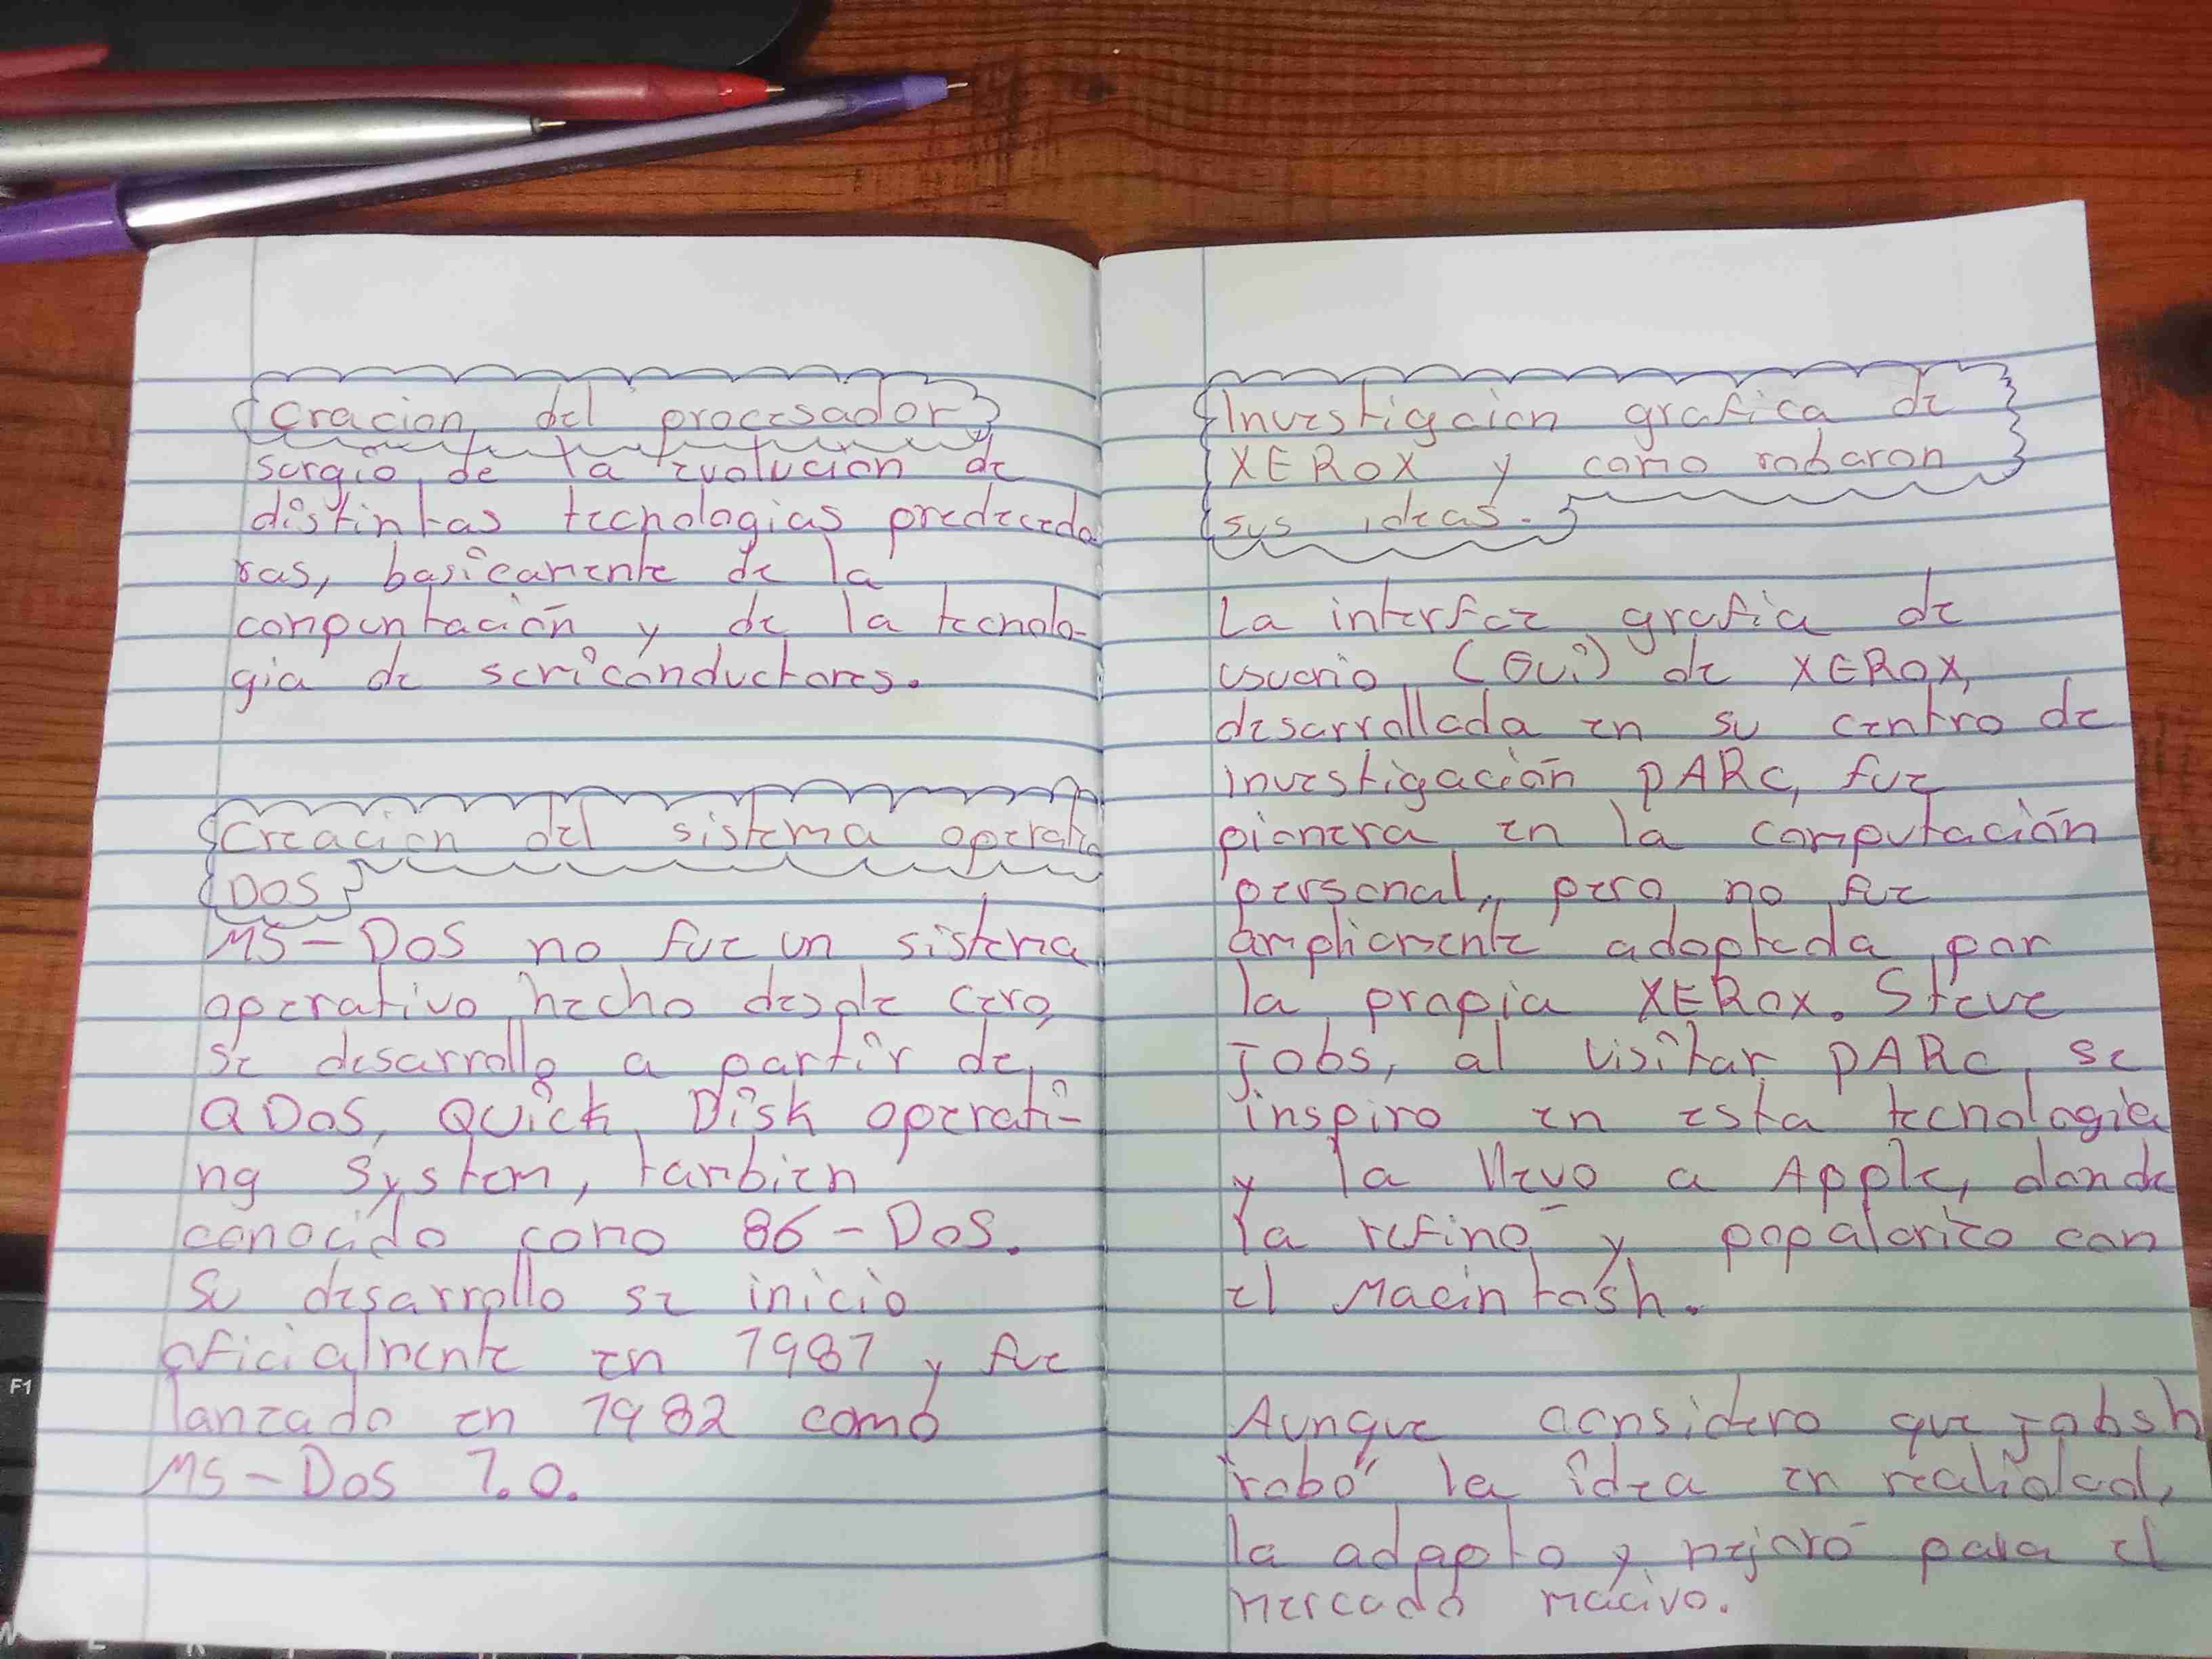 Cracion del procesador
surgio de la evolución de
distintas tecnologias predeceda
ras, basicamente de la
conpuntación y de la tecnolo-
gia de semiconductores.
Creacion del sistema operati
DOS
MS-DOS no fue un sistema
operativo hecho desde cero,
se desarrollo a partir de
QDOS, QUick Disk operati-
ng System, tambien
conocido como 86-DOS.
Su desarrollo se inicio
oficialmente en 1981 y fue
lanzado en 1982 como
MS-DOS 1.0.
Investigcion grafica de
XEROX y como robaron
sus ideas.
La interfaz grafia de
usuario (Gui) de XEROX,
desarrollada en su centro de
investigación PARC, fue
pionera en la computación
personal, pero no fue
ampliamente adoptada por
la propia XEROX. Steve
Jobs, al visitar PARC se
inspiro en esta tecnologia
y la llevo a Apple, donde
la refino y popalorizo con
el Macintosh.
Aunque considero que Jobsh
"robo" la idea en realidad,
la adapto y mejoró para el
mercado macivo.
F1